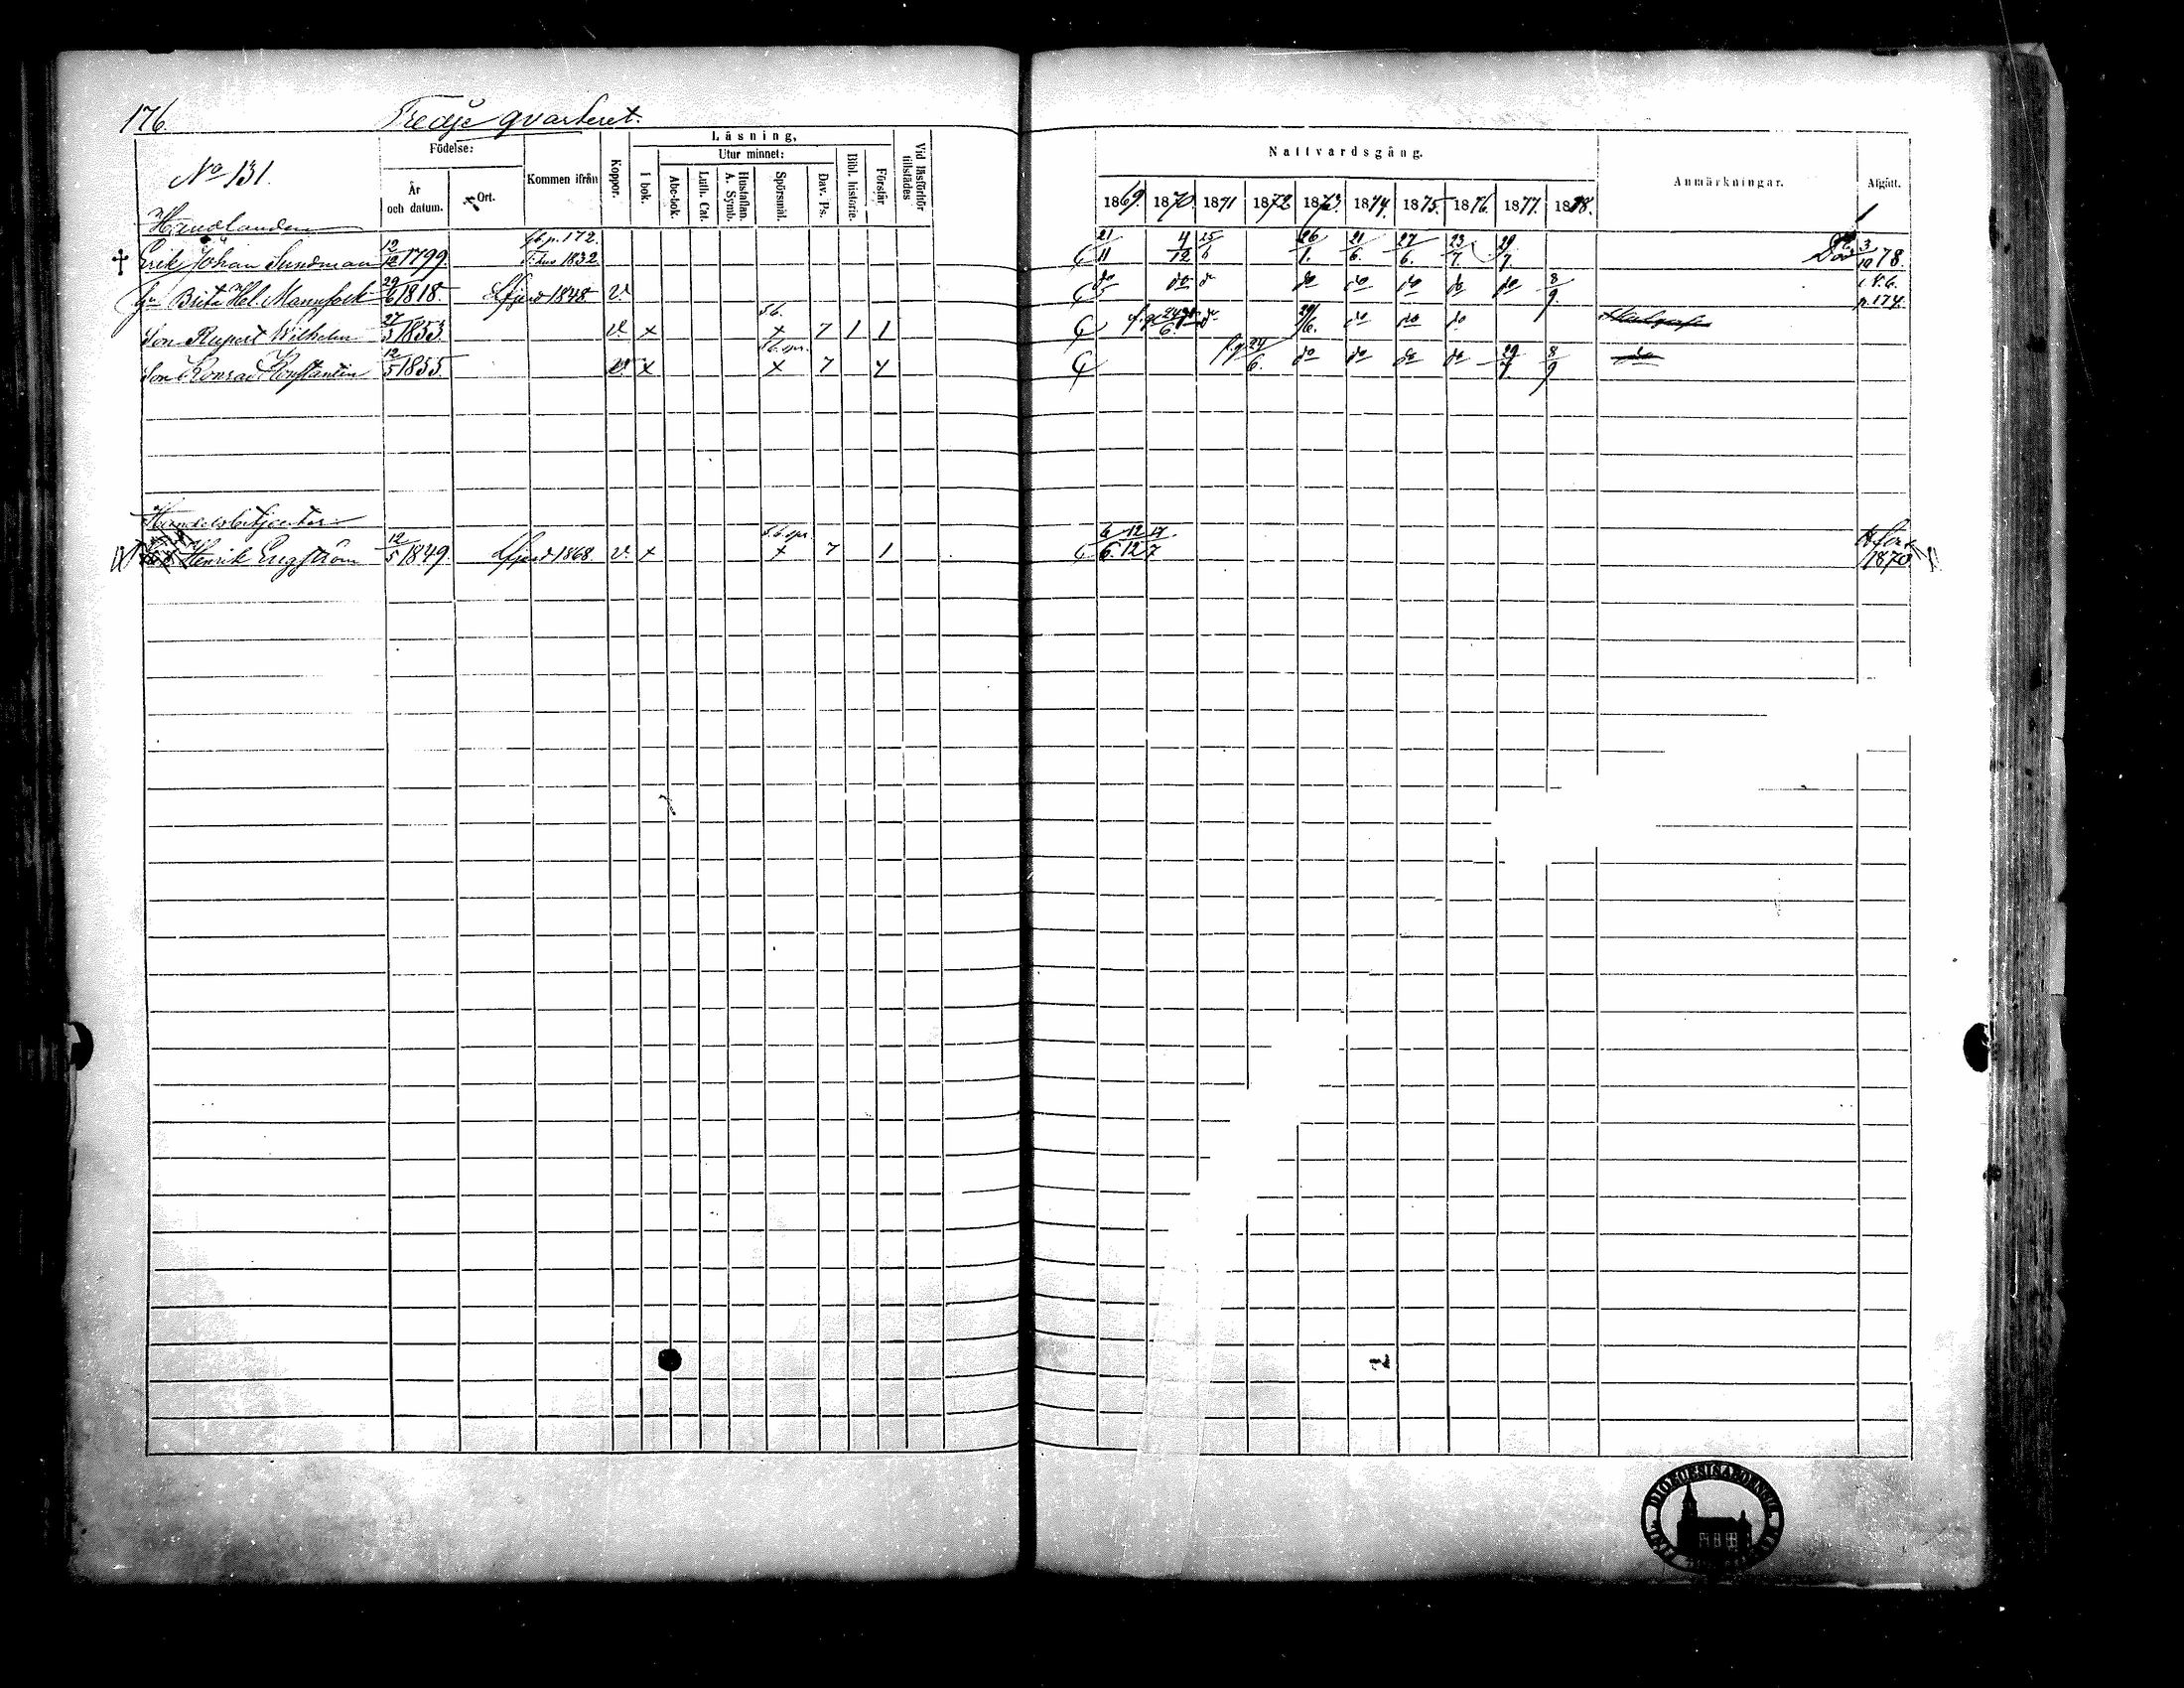 176.
Tredje qvarteret.
No 131.
Födelse:
År och datum.
Ort.
Kommen ifrån
Koppor.
Läsning,
I bok.
Utur minnet:
Abc-bok.
Luth. Cat.
Hustaflan. A. Symb.
Spörsmål.
Dav. Ps.
Bibl. historie.
Förstår
Vid läsförhör tillstädes
Nattvardsgång.
1869. 1870. 1871 1872 1873. 1874. 1875. 1876. 1877. 1878.
Anmärkningar.
Afgått.
Handlanden
p. 172.
Erik Johan Sundman 12/12 1799. 1832 21/11 4/12 25/6 26/1. 21/6. 27/6. 23/7. 29/7. Död 3/10 78.
Brita Hel. Mannfolk 29/6 1818. 1848 v. do do do do do do do do 8/9. p. 174.
Son Rupert Wilhelm 27/3 1853. v. x x 7 1 1 do 29/6. do do do
Son Konrad Konstantin 12/5 1855. v. x x 7 24/6. do do do do 29/7. 8/9
Handelsbetjenten
Henrik Engström 12/5 1849. 1868. v. x x 7 1 6 12 7 1870
DIOECESIS ABOENSIS